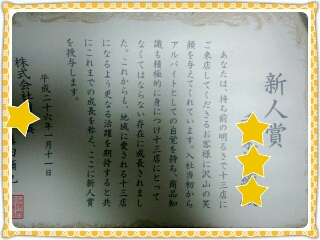 新人賞
あなたは、持ち前の明るさで十三店に
ご来店してくださるお客様に沢山の笑
顔を与えてくれています。入社当初から
アルバイトとしての自覚を持ち、商品知
識も積極的に身につけ十三店にとって
なくてはならない存在に成長されまし
た。これからも、地域に愛される十三店
になるよう更なる活躍を期待すると共
にこれまでの成長を称え、ここに新人賞
を授与します。
平成二十六年一月十一日
株式会社